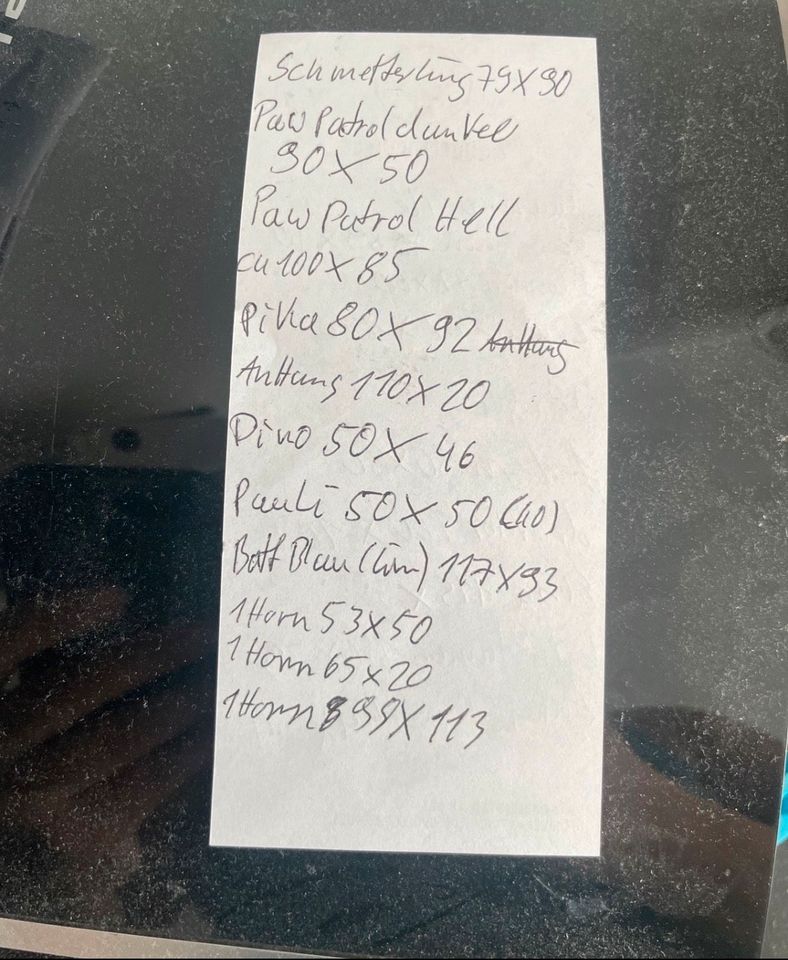 Schmetterling 79X90
Paw Patrol dunkel
90X50
Paw Patrol Hell
ca 100X85
Pika 80X92
AnHang 110X20
Dino 50X46
Pauli 50X50 (40)
Bett Blau (Tim) 117X93
1Horn 53X50
1Horn 65x20
1Horn 99X113